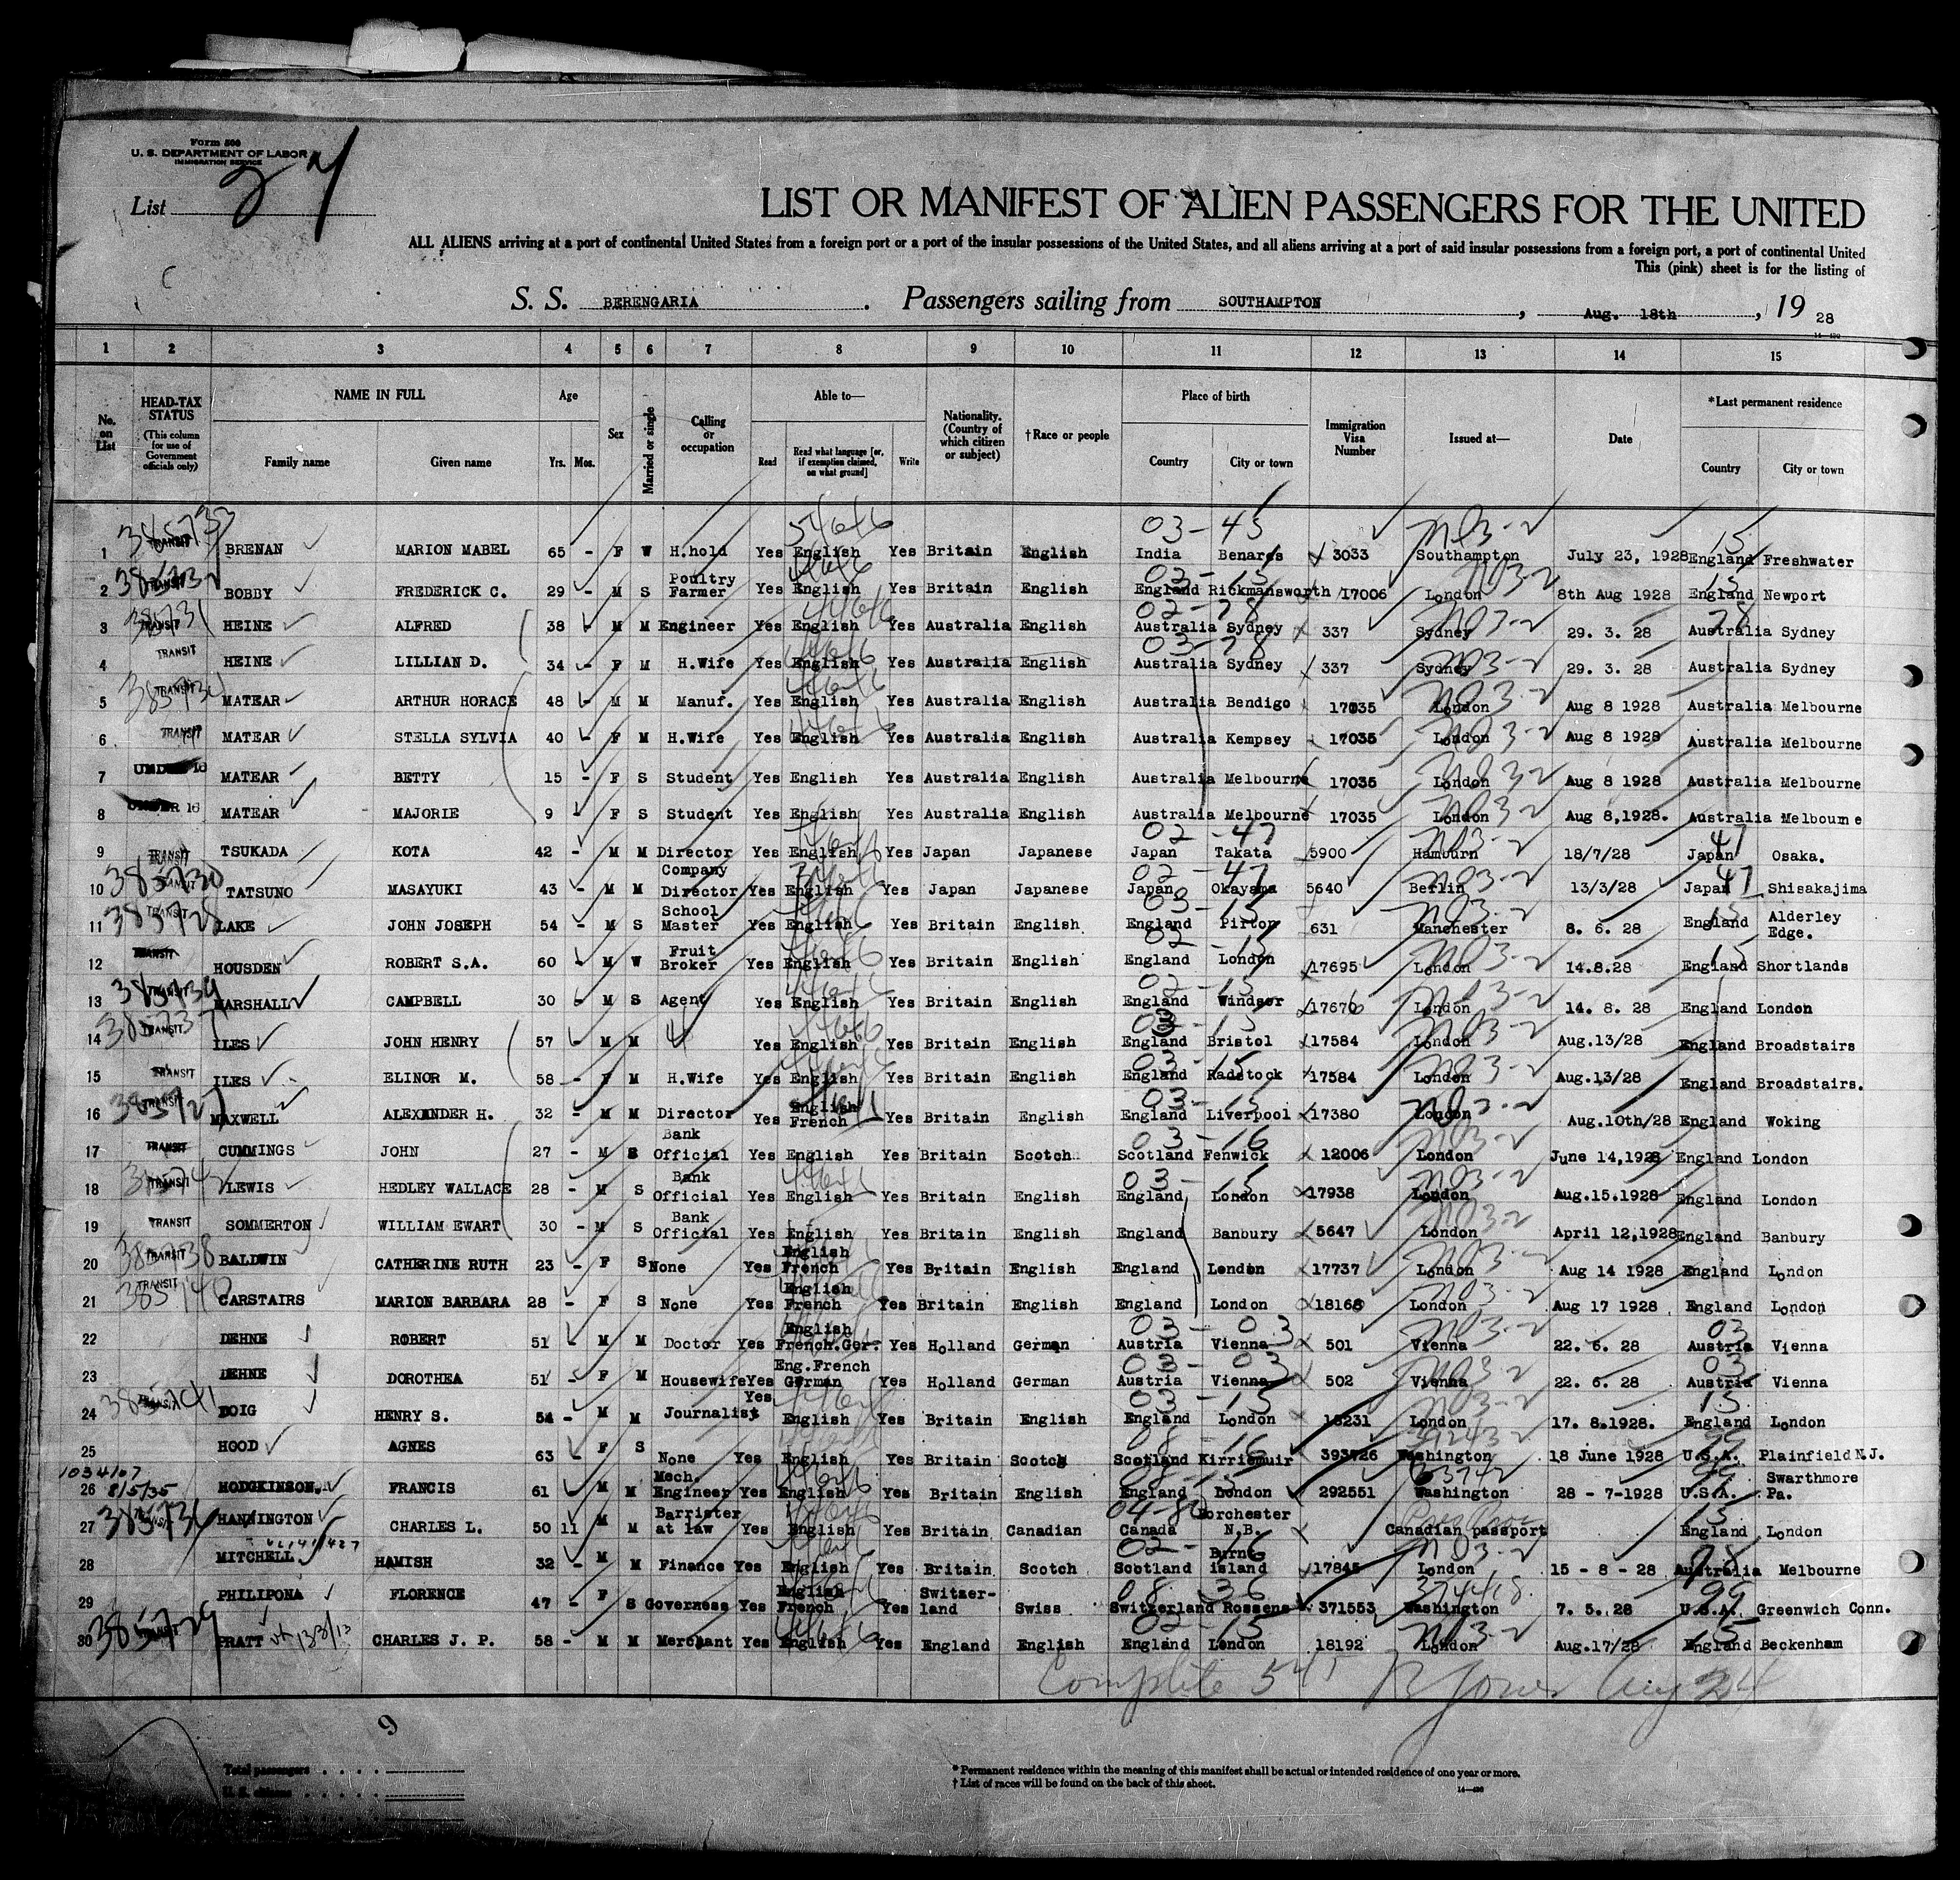 Form 500
U. S. DEPARTMENT OF LABOR
IMMIGRATION SERVICE
List 27
LIST OR MANIFEST OF ALIEN PASSENGERS FOR THE UNITED
ALL ALIENS arriving at a port of continental United States from a foreign port or a port of the insular possessions of the United States, and all aliens arriving at a port of said insular possessions from a foreign port, a port of continental United
This (pink) sheet is for the listing of
S. S. BERENGARIA . Passengers sailing from SOUTHAMPTON , Aug. 18th , 19 28
1 2 3 4 5 6 7 8 9 10 11 12 13 14 15
No. on List HEAD-TAX STATUS (This column for use of Government officials only) NAME IN FULL Family name Given name Age Yrs. Mos. Sex Married or single Calling or occupation Able to— Read Read what language [or, if exemption claimed, on what ground] Write Nationality. (Country of which citizen or subject) †Race or people Place of birth Country City or town Immigration Visa Number Issued at— Date *Last permanent residence Country City or town
1 TRANSIT BRENAN MARION MABEL 65 - F W H.hold Yes English Yes Britain English India Benares 3033 Southampton July 23, 1928 England Freshwater
2 TRANSIT BOBBY FREDERICK C. 29 - M S Poultry Farmer Yes English Yes Britain English England Rickmansworth 17006 London 8th Aug 1928 England Newport
3 TRANSIT HEINE ALFRED 38 - M M Engineer Yes English Yes Australia English Australia Sydney 337 Sydney 29. 3. 28 Australia Sydney
4 TRANSIT HEINE LILLIAN D. 34 - F M H.Wife Yes English Yes Australia English Australia Sydney 337 Sydney 29. 3. 28 Australia Sydney
5 TRANSIT MATEAR ARTHUR HORACE 48 - M M Manuf. Yes English Yes Australia English Australia Bendigo 17035 London Aug 8 1928 Australia Melbourne
6 TRANSIT MATEAR STELLA SYLVIA 40 - F M H.Wife Yes English Yes Australia English Australia Kempsey 17035 London Aug 8 1928 Australia Melbourne
7 UNDER 16 MATEAR BETTY 15 - F S Student Yes English Yes Australia English Australia Melbourne 17035 London Aug 8 1928 Australia Melbourne
8 UNDER 16 MATEAR MAJORIE 9 - F S Student Yes English Yes Australia English Australia Melbourne 17035 London Aug 8,1928. Australia Melboume
9 TRANSIT TSUKADA KOTA 42 - M M Director Yes English Yes Japan Japanese Japan Takata 5900 Hamburn 18/7/28 Japan Osaka.
10 TRANSIT TATSUNO MASAYUKI 43 - M M Company Director Yes English Yes Japan Japanese Japan Okayama 5640 Berlin 13/3/28 Japan Shisakajima
11 TRANSIT LAKE JOHN JOSEPH 54 - M S School Master Yes English Yes Britain English England Pirton 631 Manchester 8. 6. 28 England Alderley Edge.
12 TRANSIT HOUSDEN ROBERT S.A. 60 - M W Fruit Broker Yes English Yes Britain English England London 17695 London 14.8.28 England Shortlands
13 TRANSIT MARSHALL CAMPBELL 30 - M S Agent Yes English Yes Britain English England Windsor 17670 London 14. 8. 28 England London
14 TRANSIT ILES JOHN HENRY 57 - M M Yes English Yes Britain English England Bristol 17584 London Aug.13/28 England Broadstairs
15 TRANSIT ILES ELINOR M. 58 - F M H.Wife Yes English Yes Britain English England Radstock 17584 London Aug.13/28 England Broadstairs.
16 TRANSIT MAXWELL ALEXANDER H. 32 - M M Director Yes English French Yes Britain English England Liverpool 17380 London Aug.10th/28 England Woking
17 TRANSIT CUMMINGS JOHN 27 - M S Bank Official Yes English Yes Britain Scotch Scotland Fenwick 12006 London June 14,1928 England London
18 TRANSIT LEWIS HEDLEY WALLACE 28 - M S Bank Official Yes English Yes Britain English England London 17938 London Aug.15.1928 England London
19 TRANSIT SOMMERTON WILLIAM EWART 30 - M S Bank Official Yes English Yes Britain English England Banbury 5647 London April 12,1928 England Banbury
20 TRANSIT BALDWIN CATHERINE RUTH 23 - F S None Yes English French Yes Britain English England London 17737 London Aug 14 1928 England London
21 TRANSIT CARSTAIRS MARION BARBARA 28 - F S None Yes English French Yes Britain English England London 18168 London Aug 17 1928 England London
22 DEHNE ROBERT 51 - M M Doctor Yes English French.Ger. Yes Holland German Austria Vienna 501 Vienna 22. 6. 28 Austria Vienna
23 DEHNE DOROTHEA 51 - F M Housewife Yes Eng.French German Yes Holland German Austria Vienna 502 Vienna 22. 6. 28 Austria Vienna
24 TRANSIT DOIG HENRY S. 54 - M M Journalist Yes English Yes Britain English England London 18231 London 17. 8.1928. England London
25 HOOD AGNES 63 - F S None Yes English Yes Britain Scotch Scotland Kirriemuir 393726 Washington 18 June 1928 U.S.A. Plainfield N.J.
26 HODGKINSON. FRANCIS 61 - M M Mech. Engineer Yes English Yes Britain English England London 292551 Washington 28 - 7-1928 U.S.A. Swarthmore Pa.
27 TRANSIT HANNINGTON CHARLES L. 50 11 M M Barrister at law Yes English Yes Britain Canadian Canada Dorchester N.B. Canadian passport England London
28 MITCHELL HAMISH 32 - M M Finance Yes English Yes Britain Scotch Scotland Burnt island 17845 London 15 - 8 - 28 Australia Melbourne
29 PHILIPONA FLORENCE 47 - F S Governess Yes English French Yes Switzer- land Swiss Switzerland Rossens 371553 Washington 7. 5. 28 U.S.A. Greenwich Conn.
30 TRANSIT PRATT CHARLES J. P. 58 - M M Merchant Yes English Yes England English England London 18192 London Aug.17/28 England Beckenham
Complete 545 R Jones Aug 24
9
Total passengers
U. S. citizens
* Permanent residence within the meaning of this manifest shall be actual or intended residence of one year or more.
† List of races will be found on the back of this sheet.